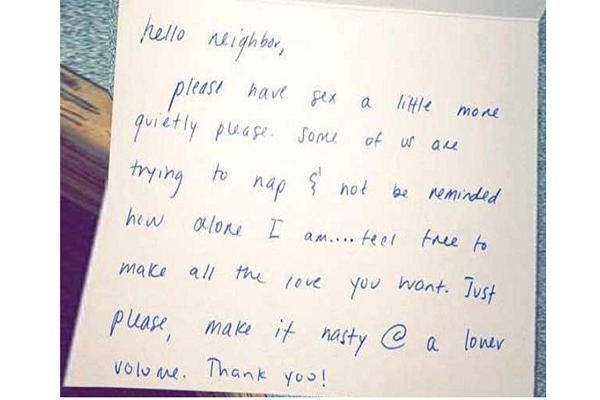 hello neighbor,
please have sex a little more
quietly please. Some of us are
trying to nap & not be reminded
how alone I am.... feel free to
make all the love you want. Just
please, make it nasty @ a lower
volume. Thank you!